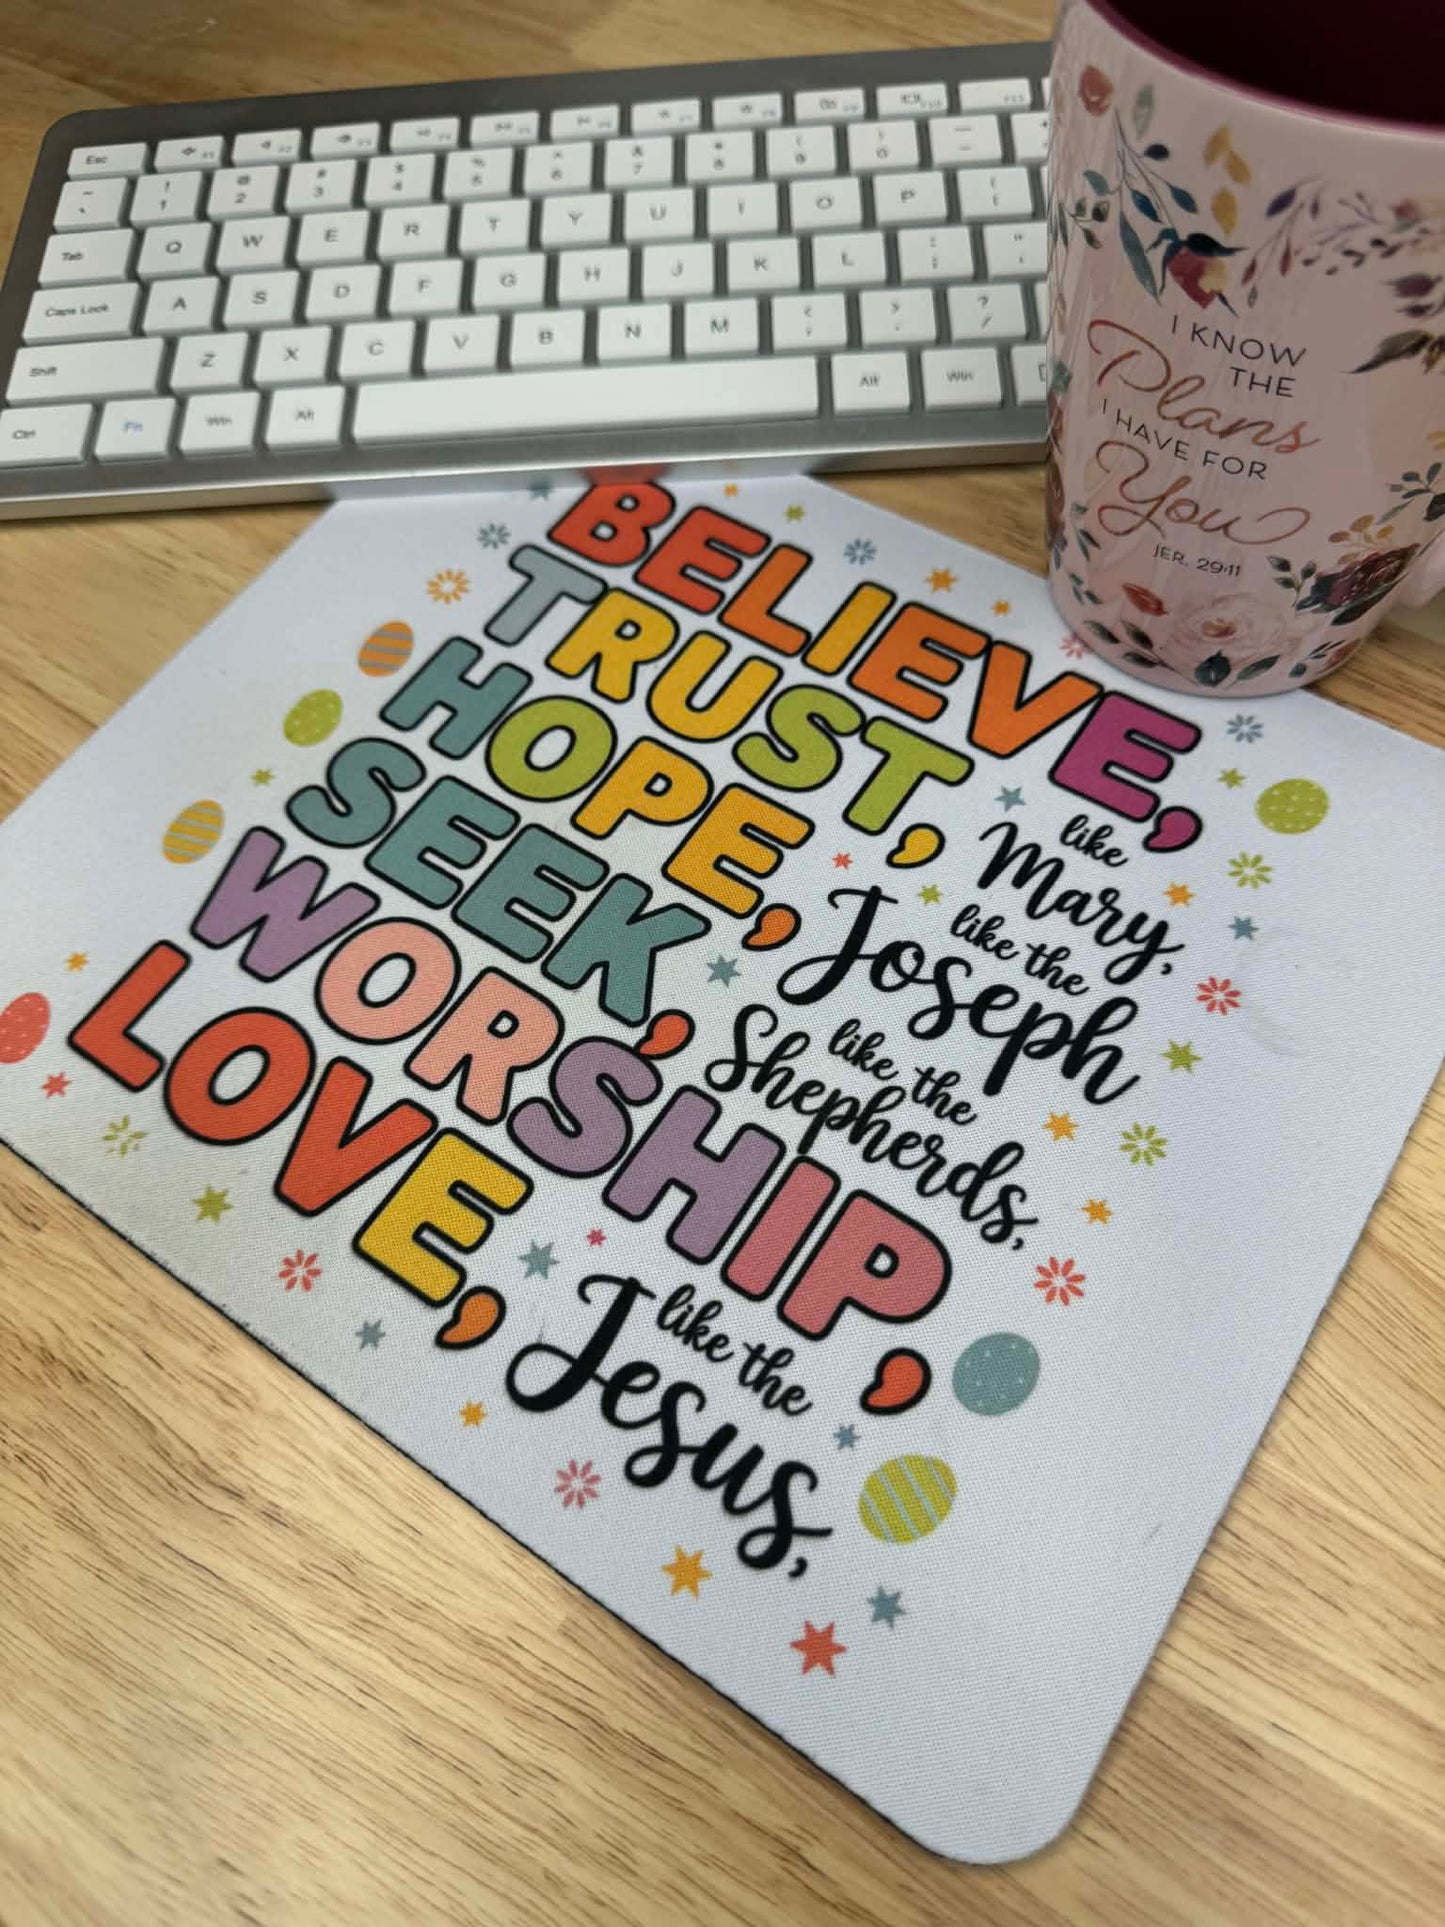 Esc
~ ! 1 @ 2 # 3 $ 4 % 5 ^ 6 & 7 * 8
Tab Q W E R T Y U I O P
Caps Lock A S D F G H J K L
Shift Z X C V B N M
Ctrl Fn Win Alt Alt Win
I KNOW
THE
Plans
I HAVE FOR
You
JER. 29:11
BELIEVE,
like
Mary,
TRUST,
like the
Joseph
HOPE,
like the
Shepherds,
SEEK,
WORSHIP,
LOVE,
like the
Jesus,